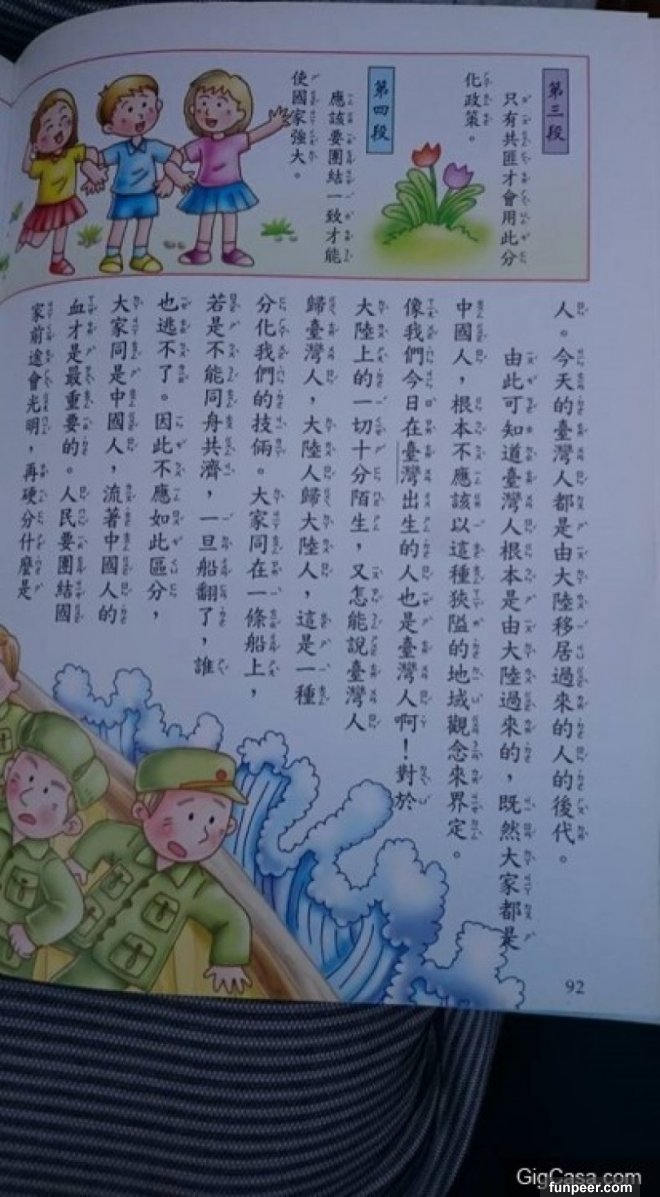 第三段
只有共匪才會用此分
化政策。
第四段
應該要團結一致才能
使國家強大。
人。今天的臺灣人都是由大陸移居過來的人的後代。
由此可知道臺灣人根本是由大陸過來的，既然大家都是
中國人，根本不應該以這種狹隘的地域觀念來界定。
像我們今日在臺灣出生的人也是臺灣人啊！對於
大陸上的一切十分陌生，又怎能說臺灣人
歸臺灣人，大陸人歸大陸人，這是一種
分化我們的技倆。大家同在一條船上，
若是不能同舟共濟，一旦船翻了，誰
也逃不了。因此不應如此區分，
大家同是中國人，流著中國人的
血才是最重要的。人民要團結國
家前途會光明，再硬分什麼是
92
GigCasa.com
funpeer.com